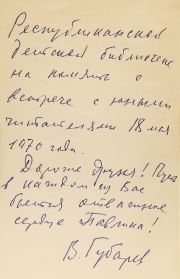 Республиканская
детская библиотеке
на память о
встрече с юными
читателями 18 мая
1970 года.
Дорогие друзья! Пусть
в каждом из Вас
бьётся отважное
сердце Павлика!
В. Губарев